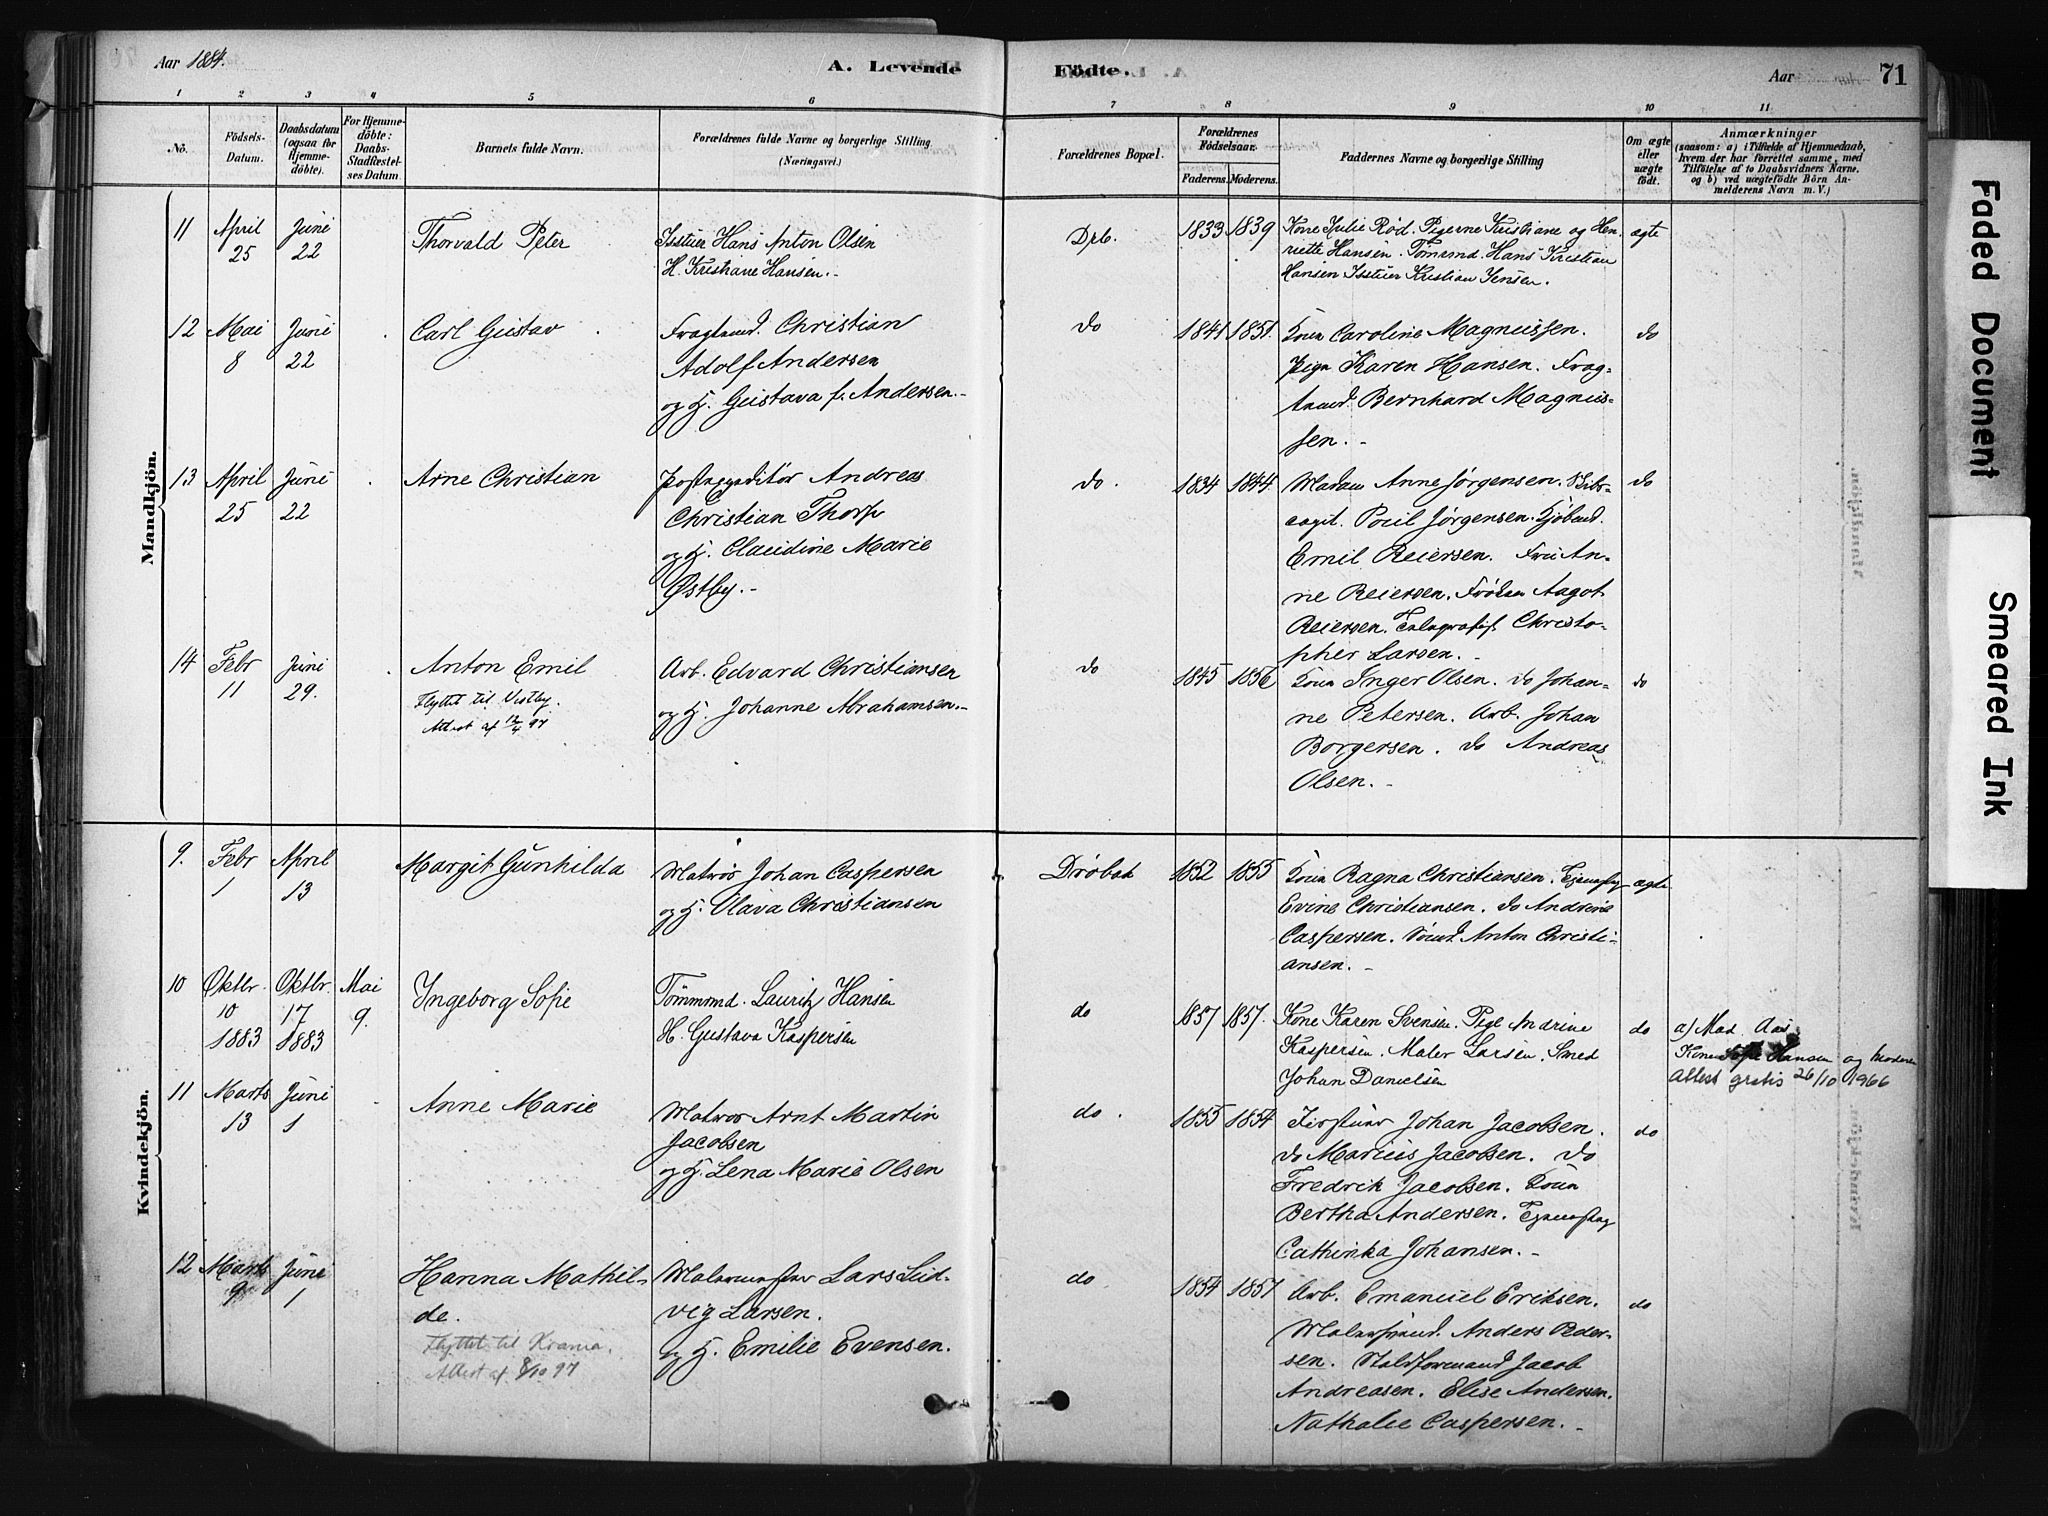 Aar 1884.
A. Levende
Födte.
Aar
71
1
2
3
4
5
6
7
8
9
10
11
No.
Födsels-
Datum.
Daabsdatum
(ogsaa for
Hjemme-
döbte).
For Hjemme-
döbte:
Daabs-
Stadfæstel-
ses Datum.
Barnets fulde Navn.
Forældrenes fulde Navne og borgerlige Stilling.
(Næringsvei.)
Forældrenes Bopæl.
Forældrenes
Födselsaar.
Faderens.
Moderens.
Faddernes Navne og borgerlige Stilling
Om ægte
eller
uægte
födt.
Anmærkninger
(saasom: a) i Tilfælde af Hjemmedaab,
hvem der har forrettet samme, med
Tilföielse af to Daabsvidners Navne.
og b) ved uægtefödte Börn An-
melderens Navn m. V.)
Mandkjön.
11
April
25
Juni
22
Thorvald Peter
Hans Anton Olsen
H. Kristiane Hansen.
Drb.
1833
1839
Kone Julie Röd. Pigerne Kristiane og Hen-
riette Hansen. Tömmd. Hans Kristian
Hansen Kristian Jensen.
ægte
12
Mai
8
Juni
22
Carl Gustav
Christian
Adolf Andersen
og H. Gustava f. Andersen.
do
1841
1851.
Kone Caroline Magnussen.
Pige Karen Hansen. Frag-
tmd. Bernhard Magnus-
sen.
do
13
April
25
Juni
22
Arne Christian
Postexpeditör Andreas
Christian Thorp
og H. Claudine Marie
Østby.
do.
1834
1844.
Madam Anne Jörgensen. Skibs-
capt. Poul Jörgensen. Kjöbmd.
Emil Reiersen. Fru An-
ne Reiersen. Fröken Aagot
Reiersen. Telegrafist Christo-
pher Larsen.
do
14
Febr
11
Juni
29.
Anton Emil
Flyttet til Vestby.
Attest af 12/4 97
Arb. Edvard Christiansen
og H. Johanne Abrahamsen.
do
1845
1856
Kone Inger Olsen. do Johan-
ne Petersen. Arb. Johan
Borgersen. do Andreas
Olsen.
do
Kvindekjön.
9.
Febr
1
April
13
Margit Gunhilda
Matros Johan Caspersen
og H. Olava Christiansen
Dröbak
1852
1855
Kone Ragna Christiansen. Tjenestpg
Evine Christiansen. do Andrine
Caspersen. Anton Christi-
ansen.
ægte
10
Oktbr.
10
1883
Oktbr.
17
1883
Mai
9.
Ingeborg Sofie
Tömmrmd. Lauritz Hansen
H. Gustava Kaspersen
do
1857
1857.
Kone Karen Svensen. Pige Andrine
Kaspersen. Maler Larsen. Smed
Johan Danielsen
do
a) Mad. Aas
Kone Sofie Hansen og Moderen
Attest gratis 26/10 1966
11
Marts
13
Juni
1
Anne Marie
Matros Arnt Martin
Jacobsen
og H. Lena Marie Olsen
do.
1855
1854
Johan Jacobsen.
do Marius Jacobsen. do
Fredrik Jacobsen. Kone
Bertha Andersen. Tjenestpg
Cathinka Johansen.
do
12
Marts
9
Juni
1
Hanna Mathil-
de.
Flyttet til Krania.
Attest af 8/10 97
Malermester Lars Lud-
vig Larsen.
og H. Emilie Evensen.
do
1854
1857
Arb. Emanuel Eriksen.
Malersvend. Anders Peder-
sen. Staldformand Jacob
Andreasen. Elise Andersen.
Nathalie Caspersen.
do
Faded Document
Smeared Ink